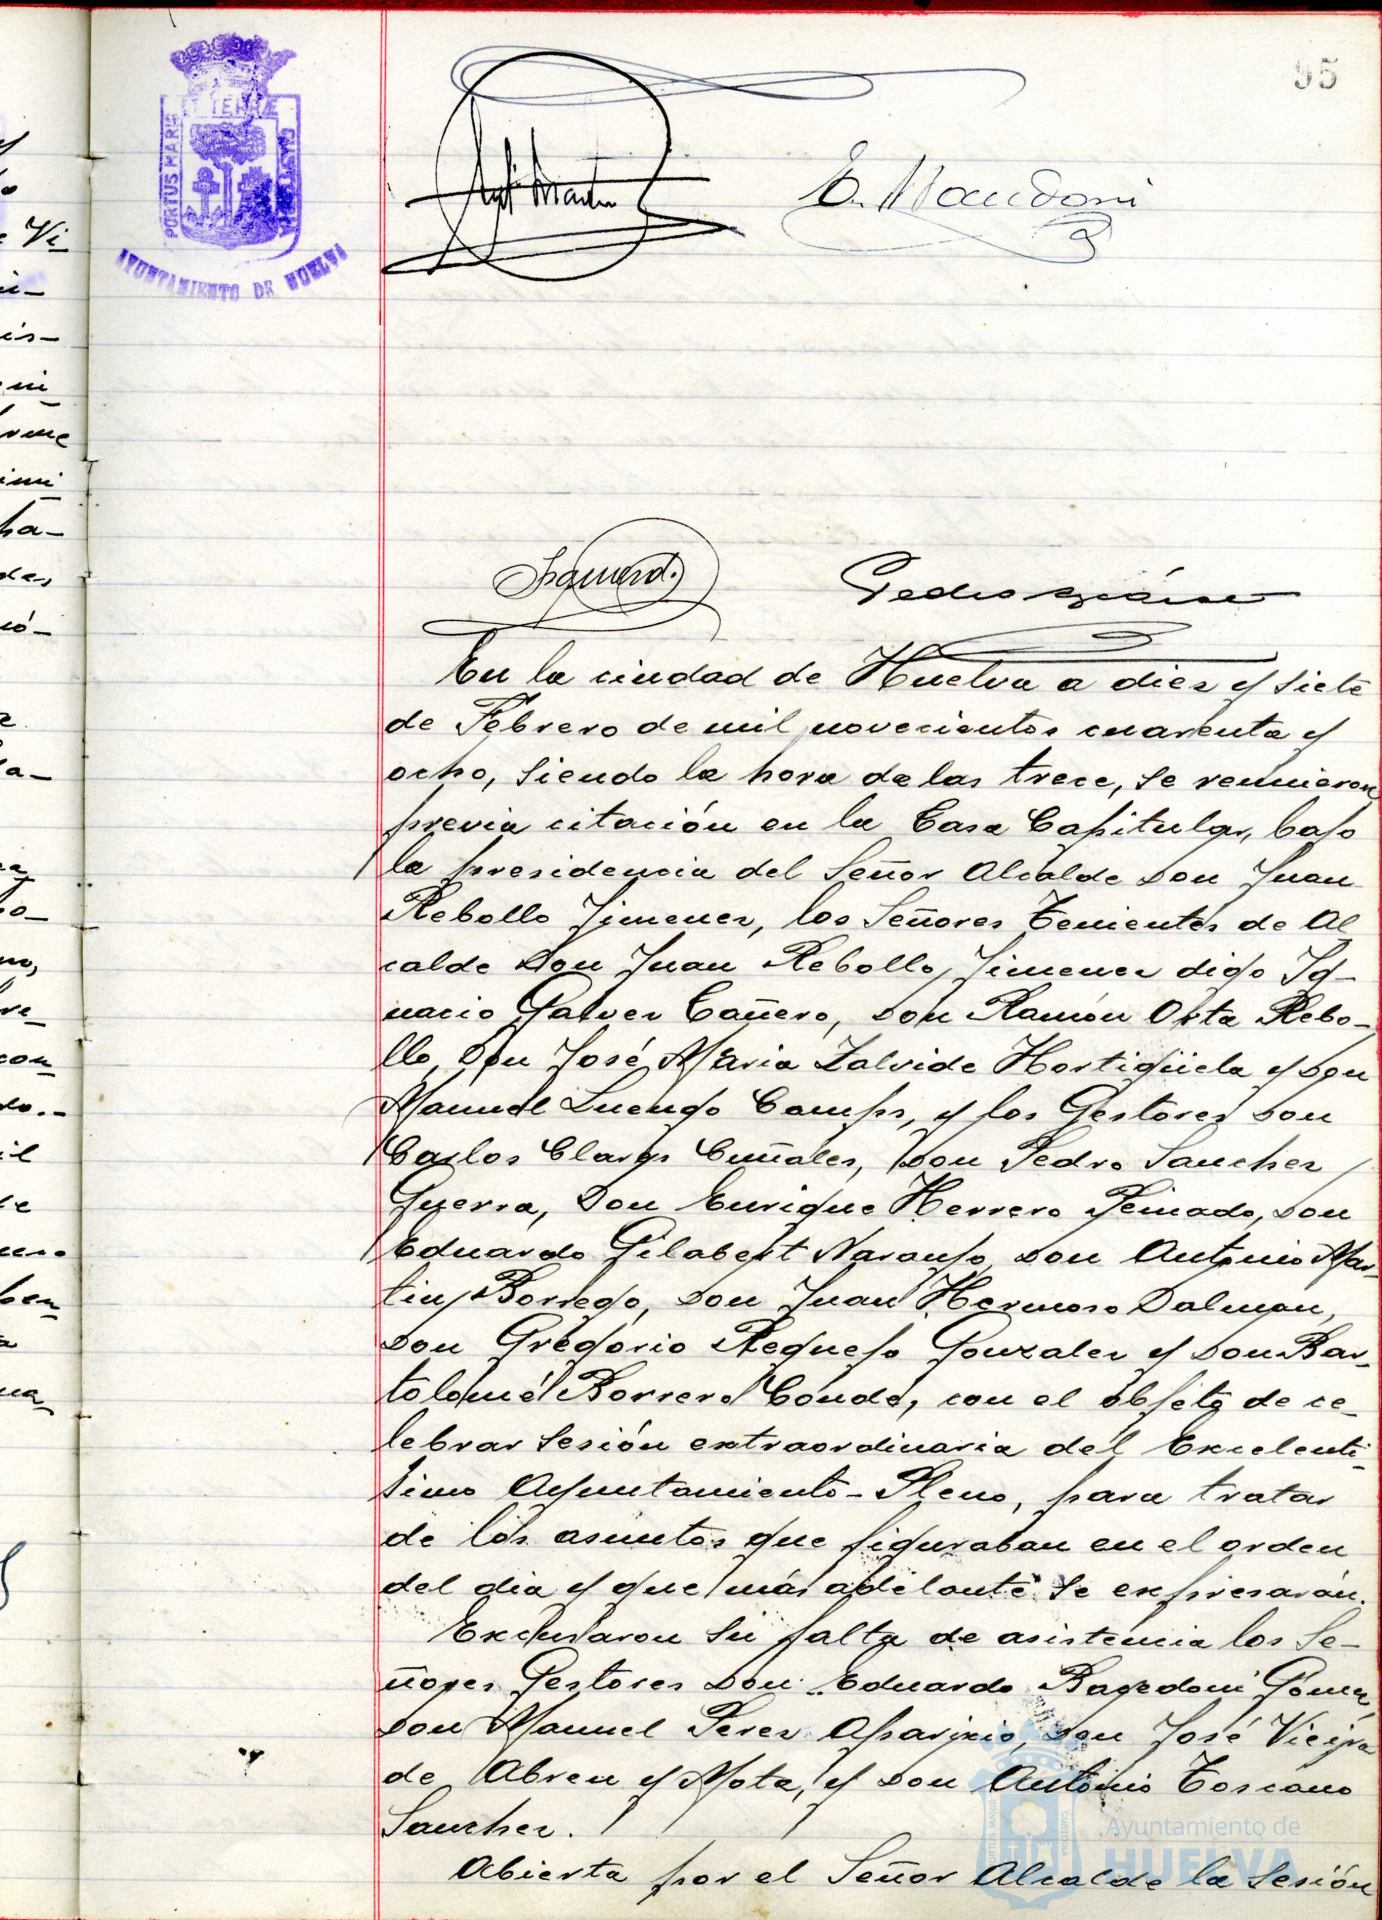 95
PORTUS MARIS ET TERRÆ CUSTODIA
AYUNTAMIENTO DE HUELVA
En la ciudad de Huelva a diez y siete
de Febrero de mil novecientos cuarenta y
ocho, siendo la hora de las trece, se reunieron
previa citación en la Casa Capitular, bajo
la presidencia del Señor Alcalde Don Juan
Rebollo Jimenez, los Señores Tenientes de Al
calde Don Juan Rebollo Jimenez digo Ig-
nacio Galvez Cañero, Don Ramón Orta Rebo-
llo, Don José Maria Zalvide Hortigüela y Don
Manuel Luengo Camps, y los Gestores Don
Carlos Claros Cuñales, Don Pedro Sanchez
Guerra, Don Enrique Herrero Peinado, Don
Eduardo Gilabert Naranjo, Don Antonio Mar-
tin Borrego, Don Juan Hermoso Dalman,
Don Gregorio Requejo Gonzalez y Don Bar-
tolomé Borrero Conde, con el objeto de ce-
lebrar sesión extraordinaria del Excelenti-
simo Ayuntamiento-Pleno, para tratar
de los asuntos que figuraban en el orden
del dia y que más adelante se expresarán.
Excusaron su falta de asistencia los Se-
ñores Gestores Don Eduardo Gómez
Don Manuel Perez Aparicio, Don José Vieira
de Abreu y Mota, y Don Antonio Toscano
Sanchez.
Abierta por el Señor Alcalde la sesión
Ayuntamiento de
HUELVA